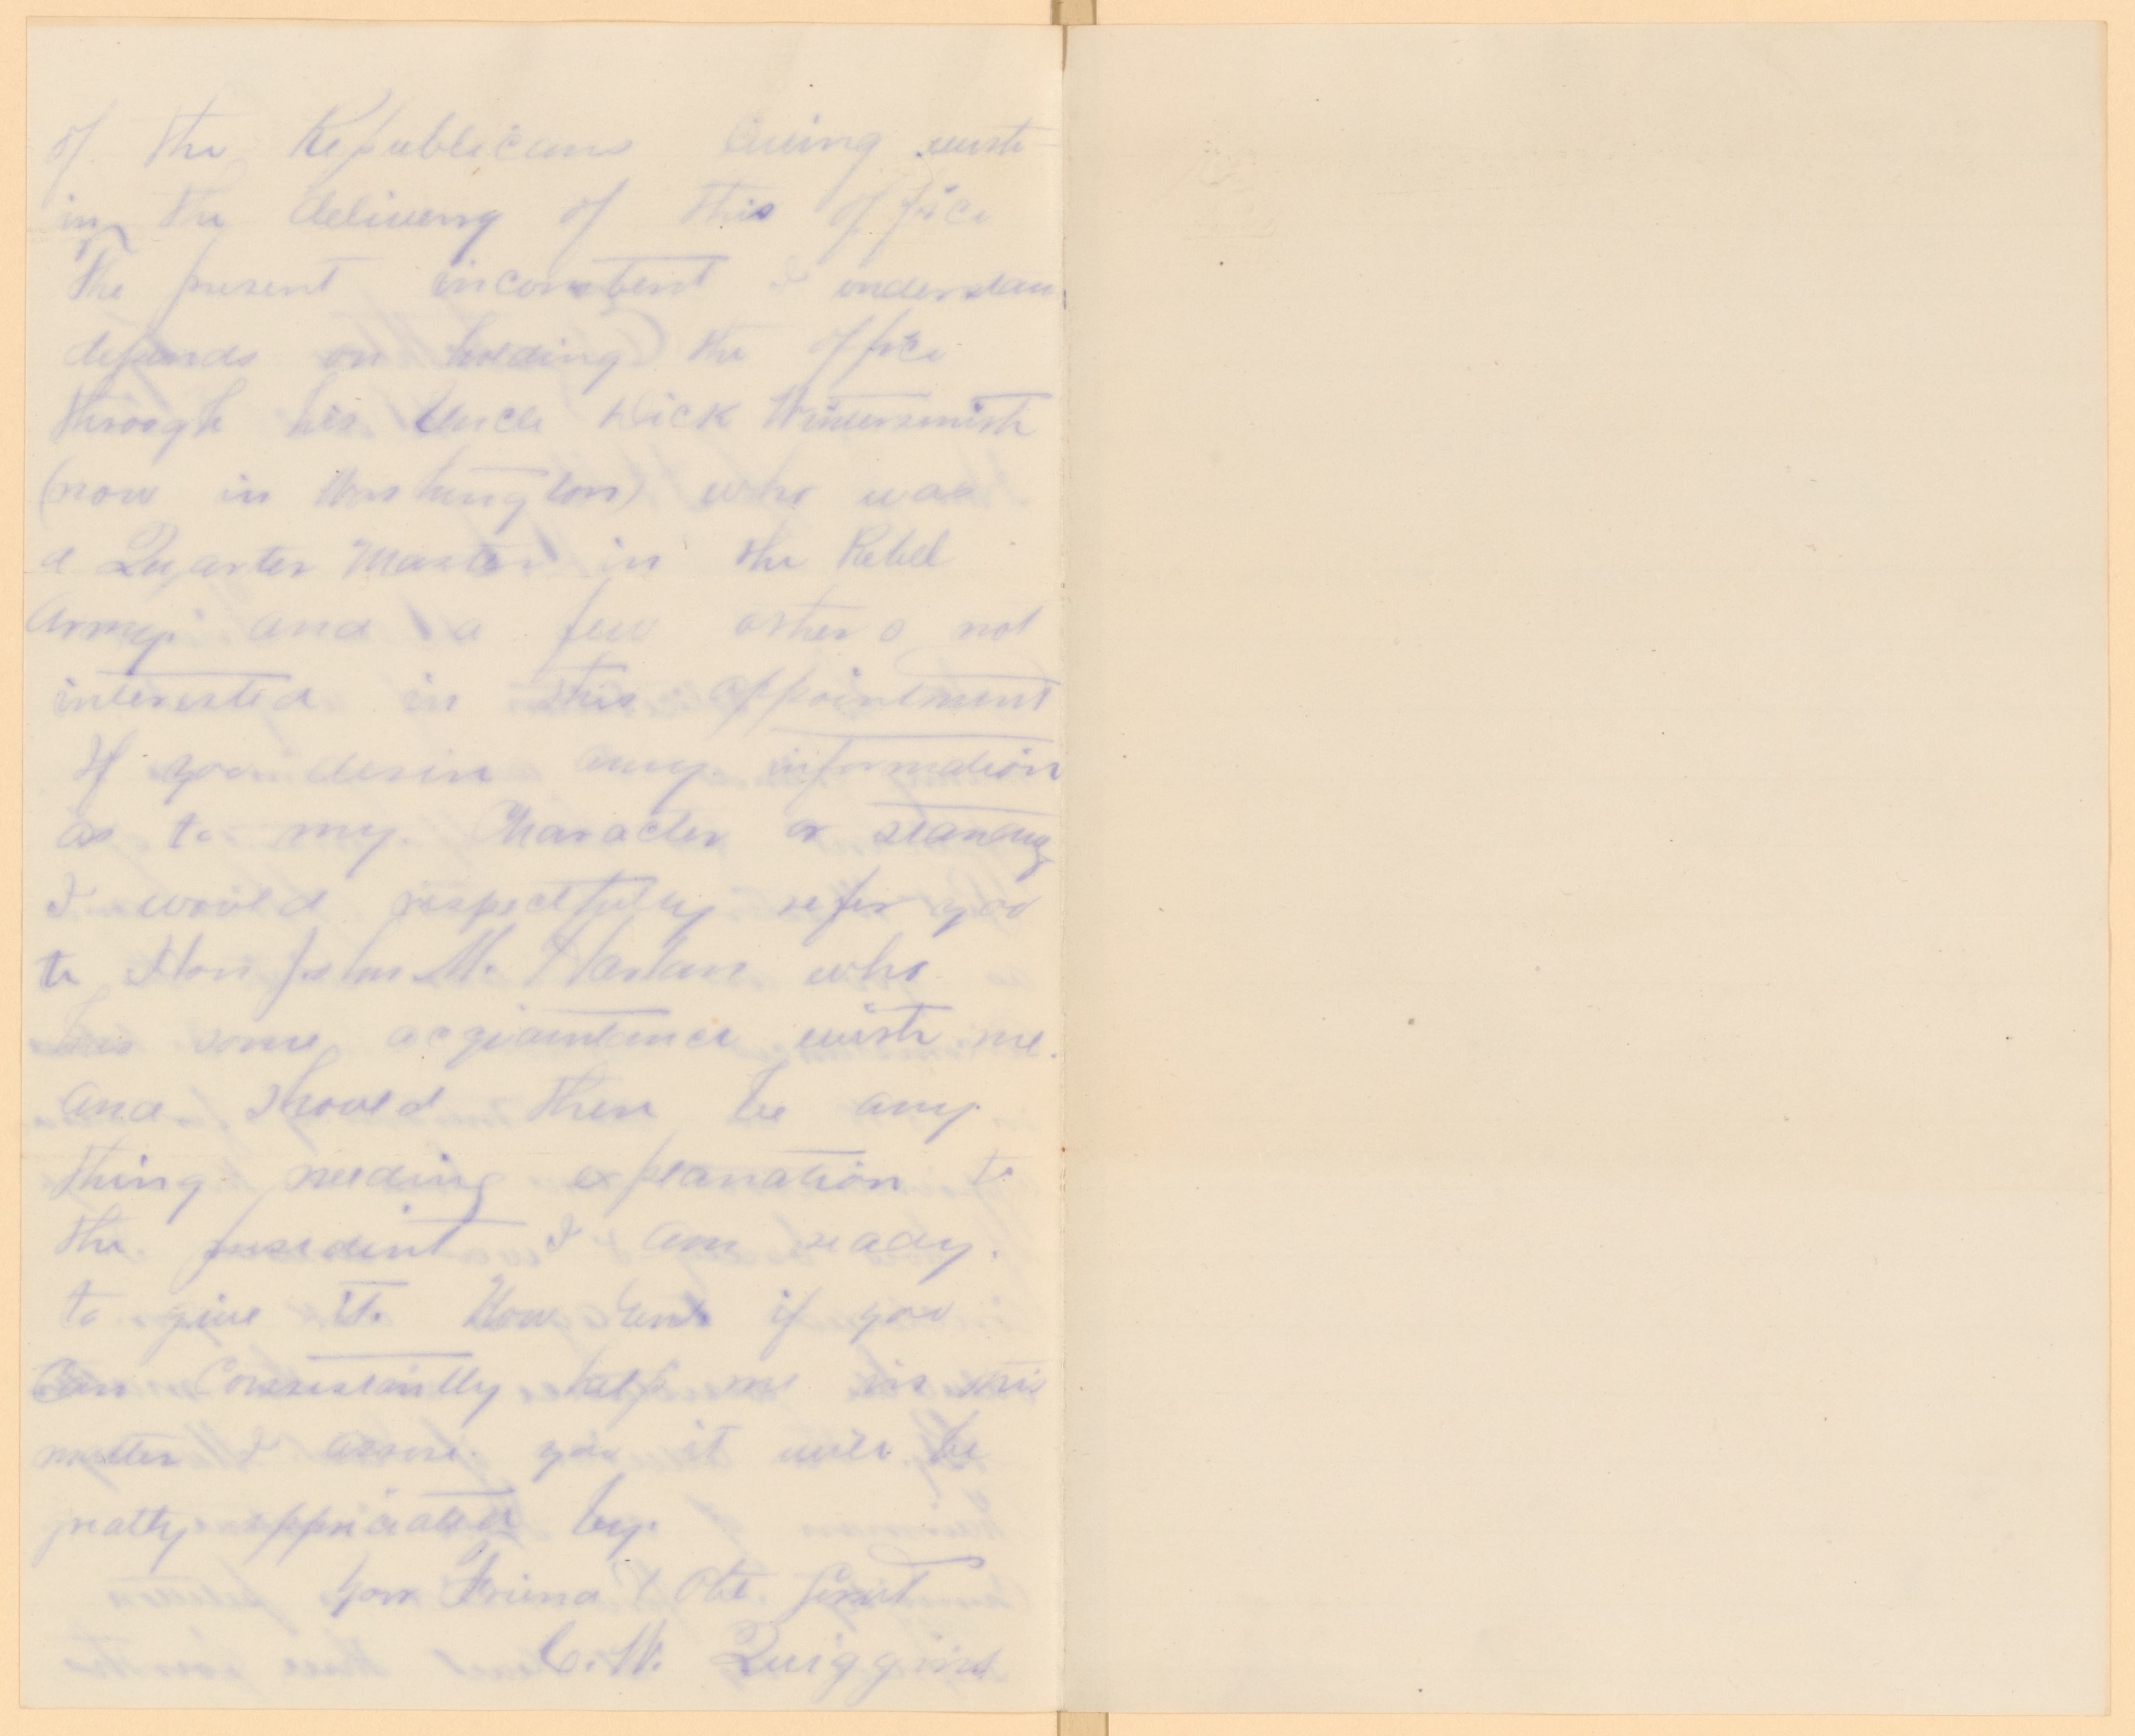 of the Republicans living with-
in the delivery of this office
The present incombent I understan
depends on holding the office
through his Uncle Dick Wintersmith
(now in Washington) who was
a Quarter Master in the Rebel
Army and a few others not
interested in this appointment
If you desire any information
as to my Character or standing
I would respectfully refer you
to Hon John M. Harlan who
has some acquaintance with me.
and should there be any
thing needing explanation to
the president I am ready
to give it. Now Genl if you
Can Consistantly help me in this
matter I assure you it will be
greatly appriciated by
Your Friend & Obt. Servt
C. W. Quiggins